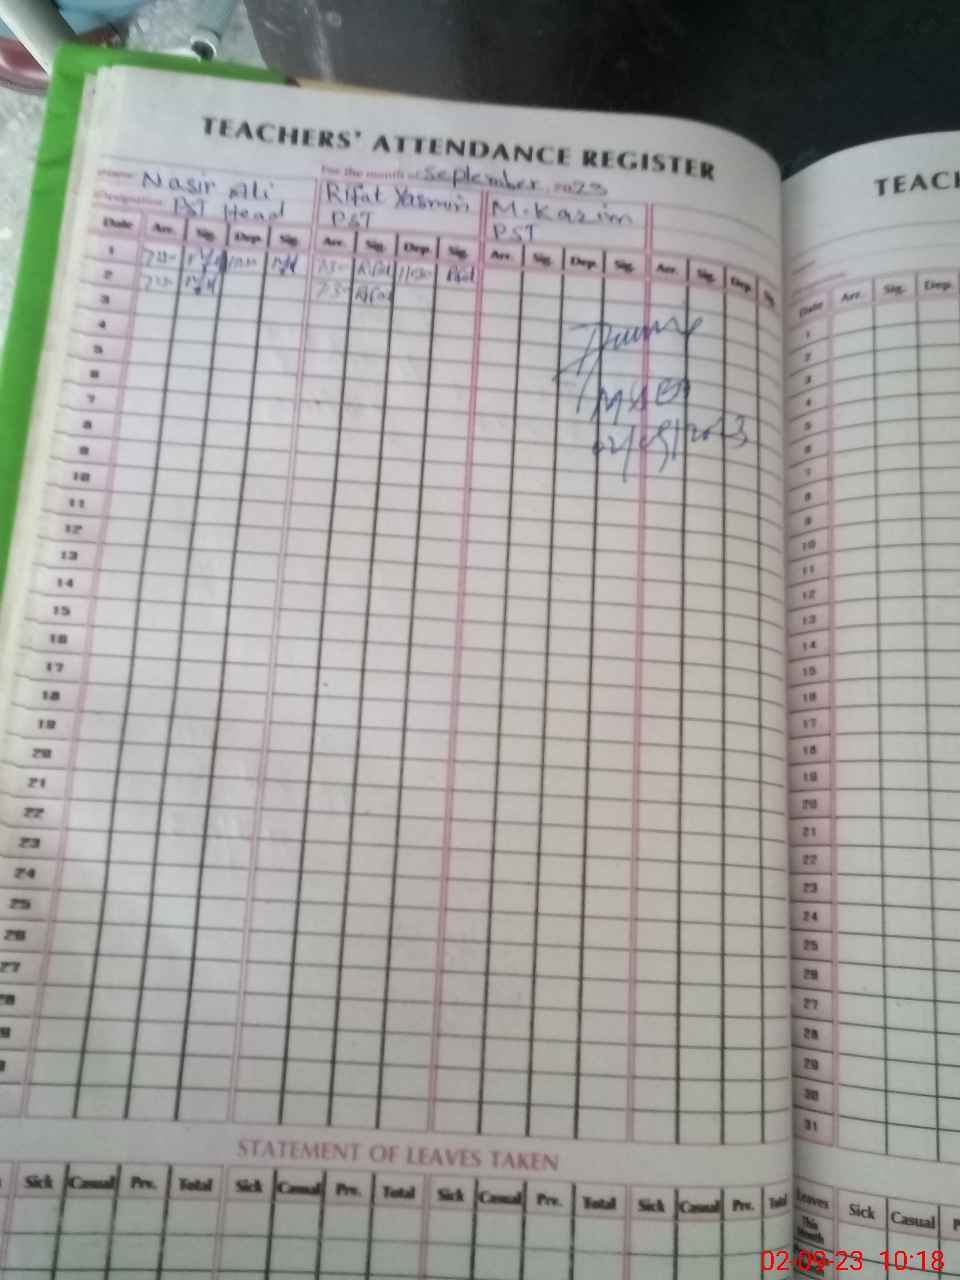 TEACHERS' ATTENDANCE REGISTER
For the month of September 2023
Nasir Ali Rifat Yasmin M. Kazim
Designation PST Head PST PST
Date Arr. Sig. Dep. Sig. Arr. Sig. Dep. Sig. Arr. Sig. Dep. Sig. Arr. Sig. Dep. Sig.
1 Rifat Rifat
2 Rifat
3
4
5
6
7
8
9
10
11
12
13
14
15
16
17
18
19
20
21
22
23
24
25
26
27
28
02/09/2023
STATEMENT OF LEAVES TAKEN
Sick Casual Prv. Total Sick Casual Prv. Total Sick Casual Prv. Total Sick Casual Prv. Total
TEACH
Date Arr. Sig. Dep.
1
2
3
4
5
6
7
8
9
10
11
12
13
14
15
16
17
18
19
20
21
22
23
24
25
26
27
28
29
30
31
Leaves Sick Casual P
This Month
02-09-23 10:18